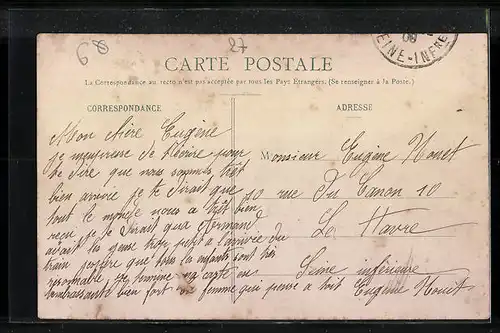 68
27
08
SEINE-INFRE
CARTE POSTALE
La Correspondance au recto n'est pas acceptée par tous les Pays Etrangers. (Se renseignes à la Poste.)
CORRESPONDANCE
Mon chère Eugène
je de t'écrire pour
te dire que nous sommes très
bien arrivée je te dirait que
tout le monde nous a très bien
reçu je te dirait qua Germaine
avait les gens à l'arrivée du
train j'espère que tous les enfants sont très
resonnable je termine ma carte en
t'embrassant bien fort ta femme qui pense a toit Eugène Houet
ADRESSE
Monsieur Eugène Houet
10 rue Du Canon 10
Le Havre
Seine inférieure